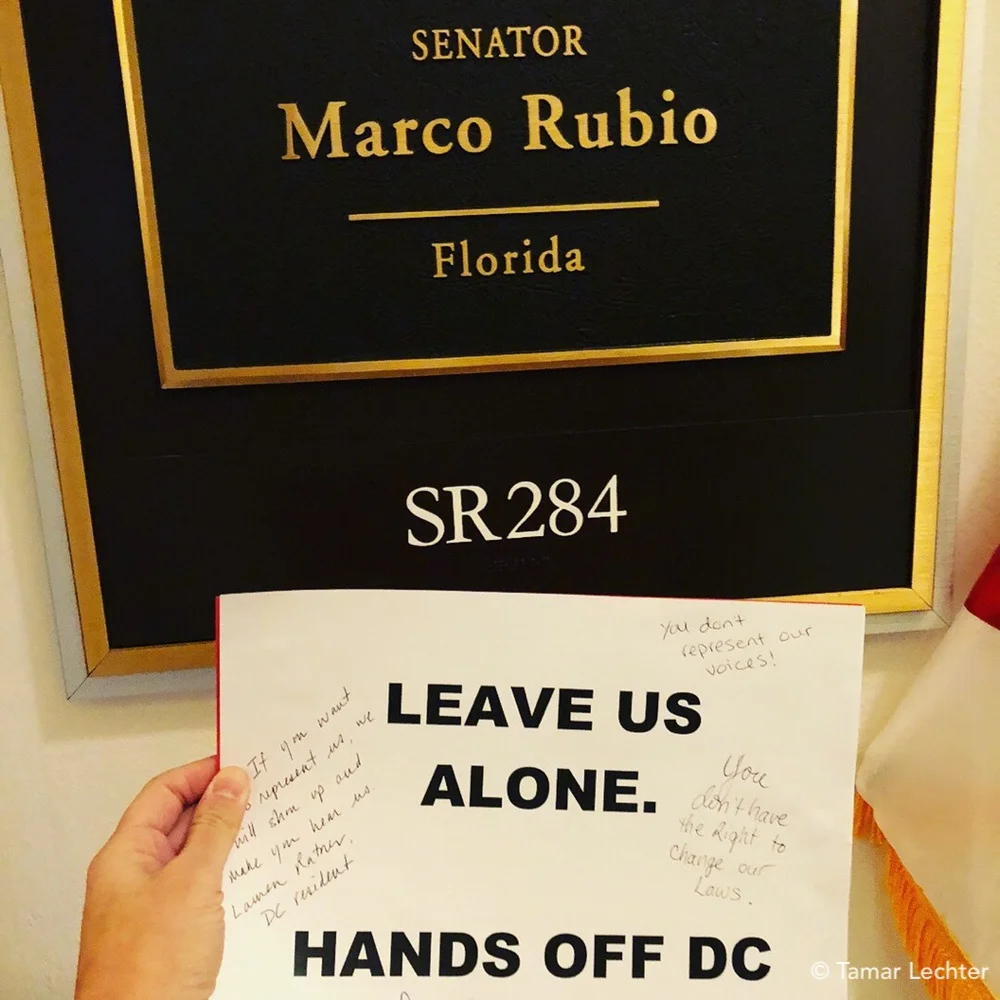 SENATOR
Marco Rubio
Florida
SR 284
You don't
represent our
voices!
LEAVE US
ALONE.
If you want
to represent us, we
will show up and
make you hear us.
Lauren Ratner,
DC resident
You
don't have
the Right to
change our
Laws.
HANDS OFF DC
© Tamar Lechter